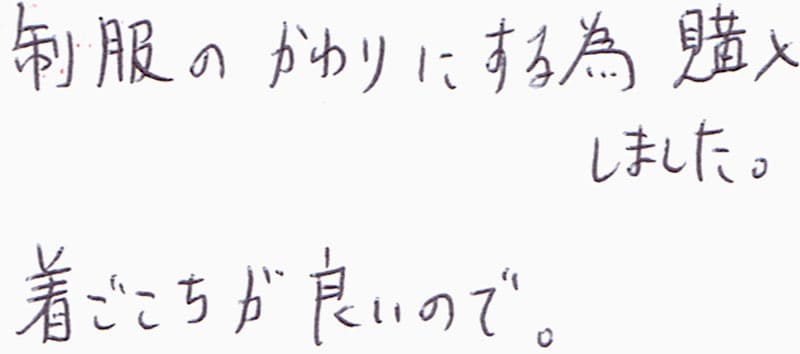 制服のかわりにする為 購入
しました。
着ごこちが良いので。